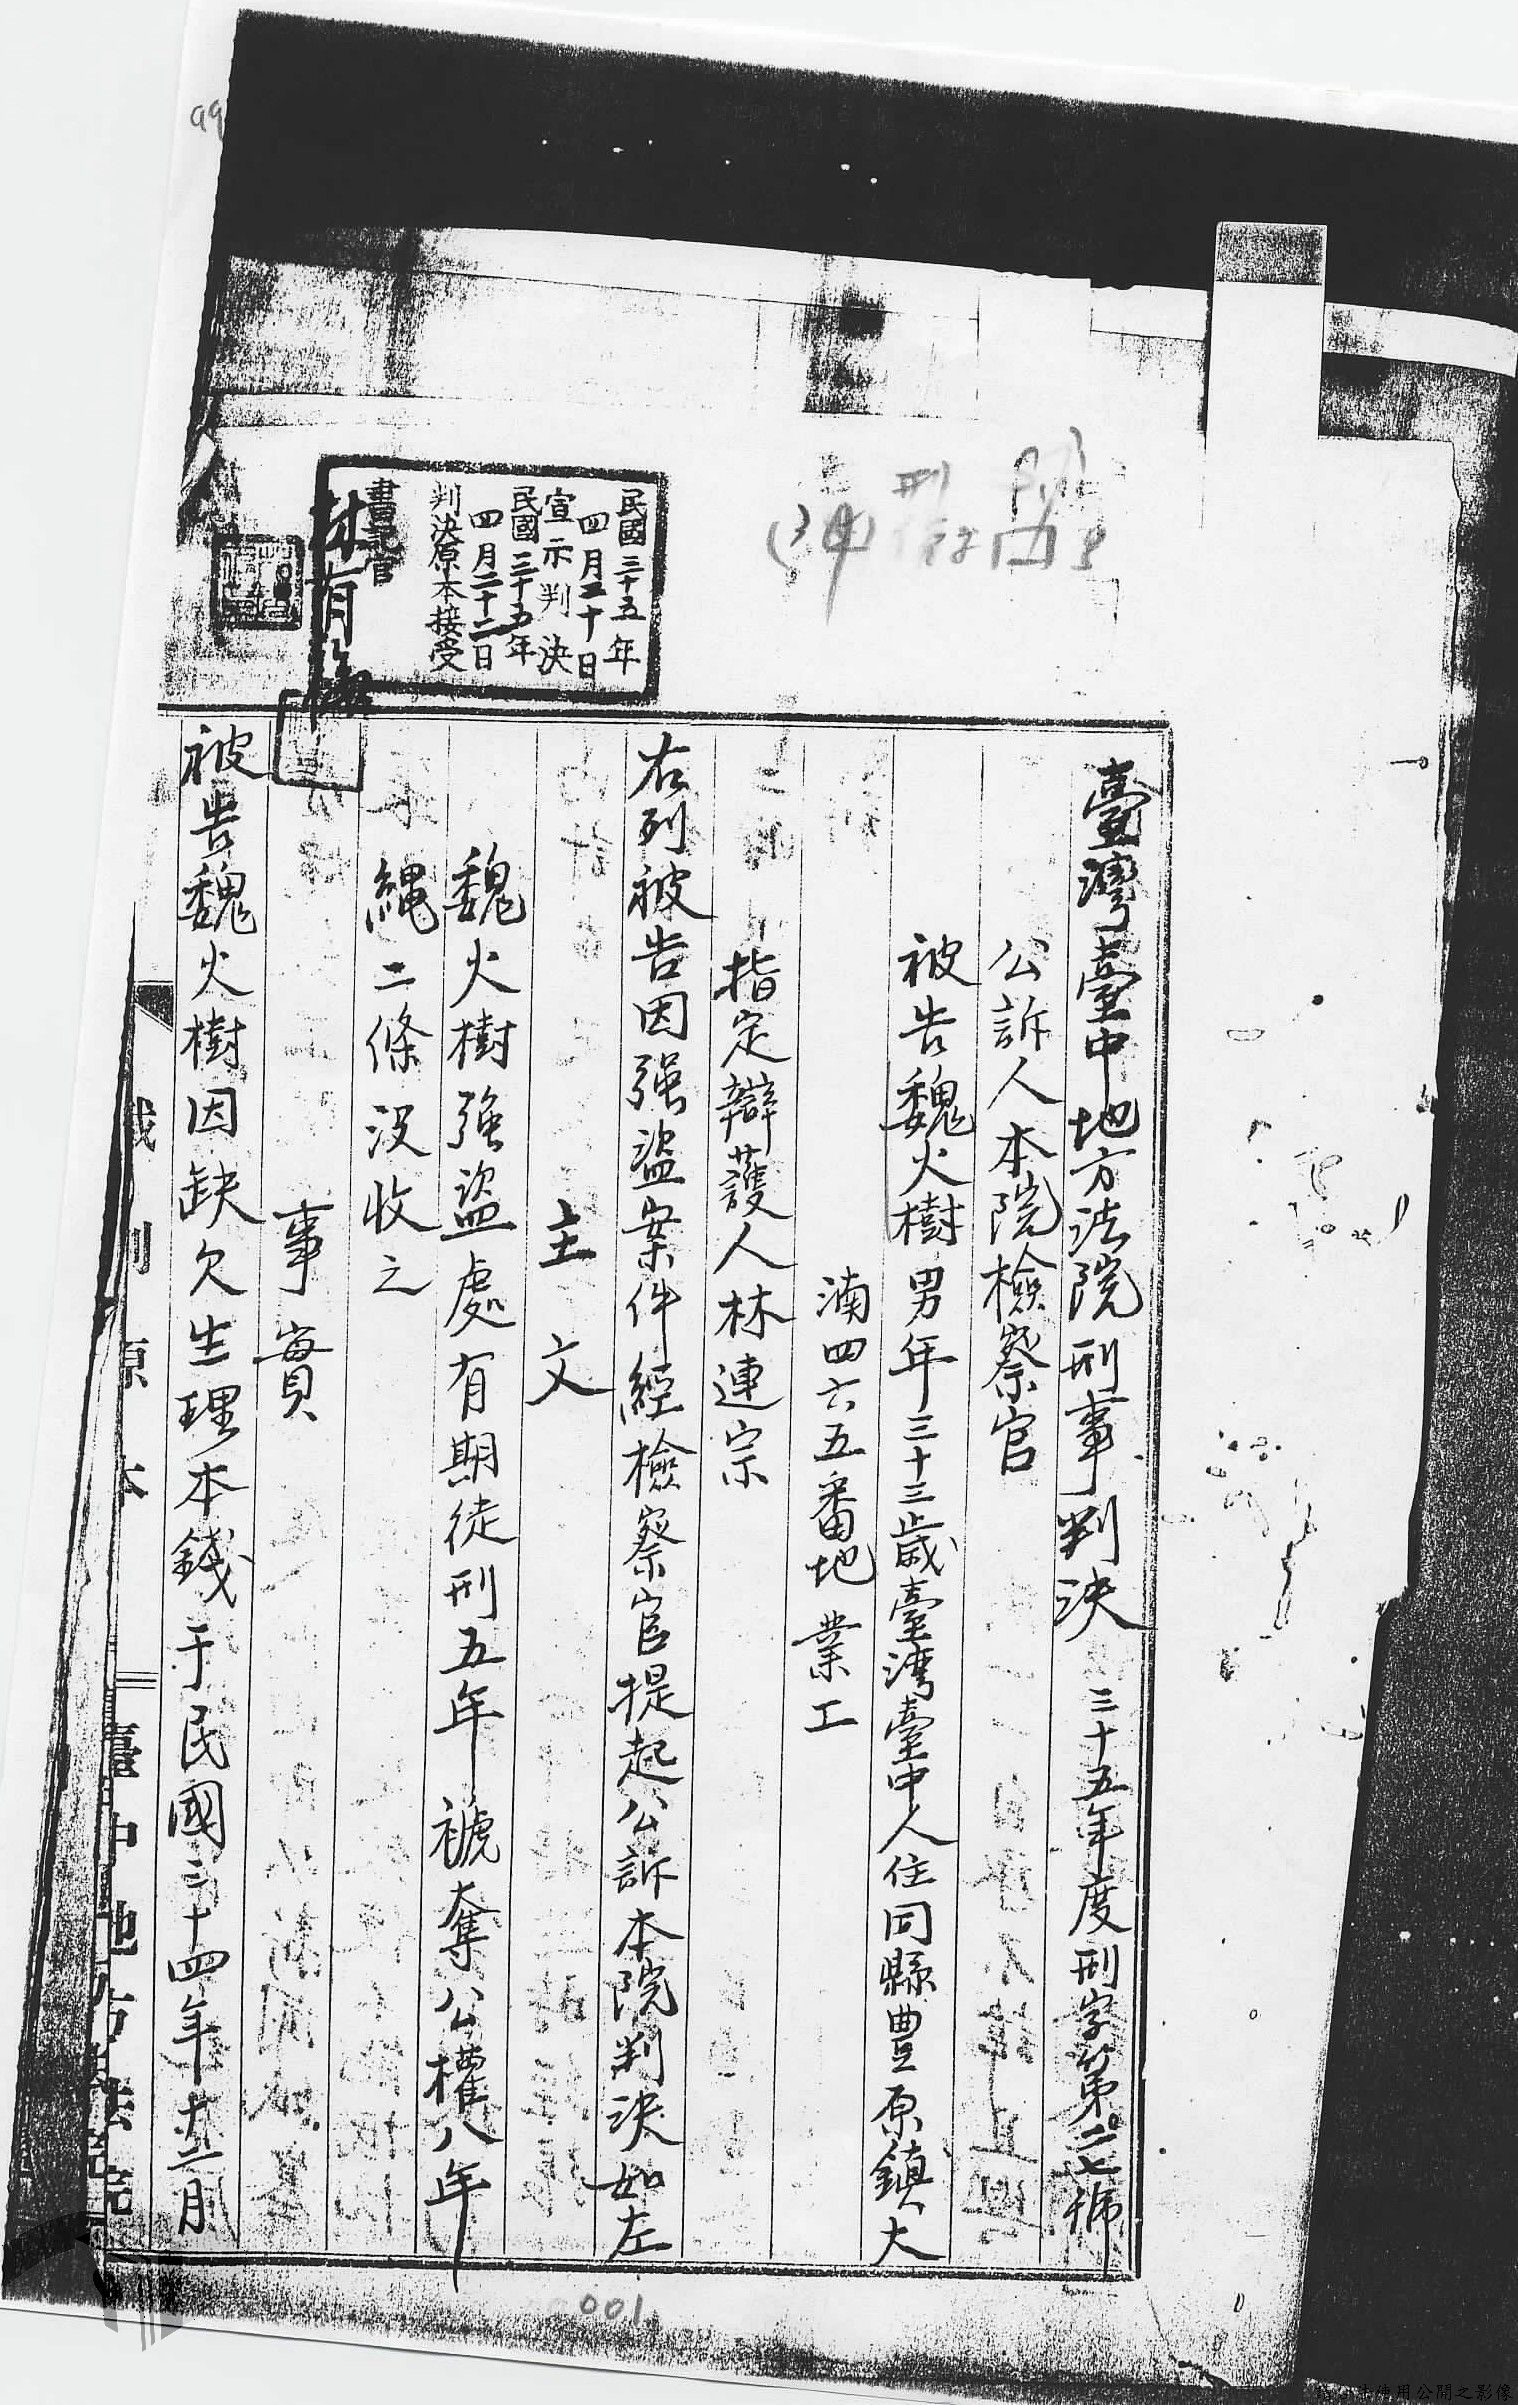 臺灣臺中地方法院刑事判決 三十五年度刑字第二七號
公訴人本院檢察官
被告魏火樹 男年三十三歲臺灣臺中人住同縣豊原鎮大
湳四六五番地 業工
指定辯護人林連宗
右列被告因强盜案件經檢察官提起公訴本院判決如左
主文
魏火樹强盜處有期徒刑五年褫奪公權八年
繩二條没收之
事實
被告魏火樹因缺欠生理本錢于民國三十四年十二月
民國三十五年
四月二十日
宣示判決
民國三十五年
四月二十二日
判決原本接受
書記官
林有
判原本
臺中地方法院
001